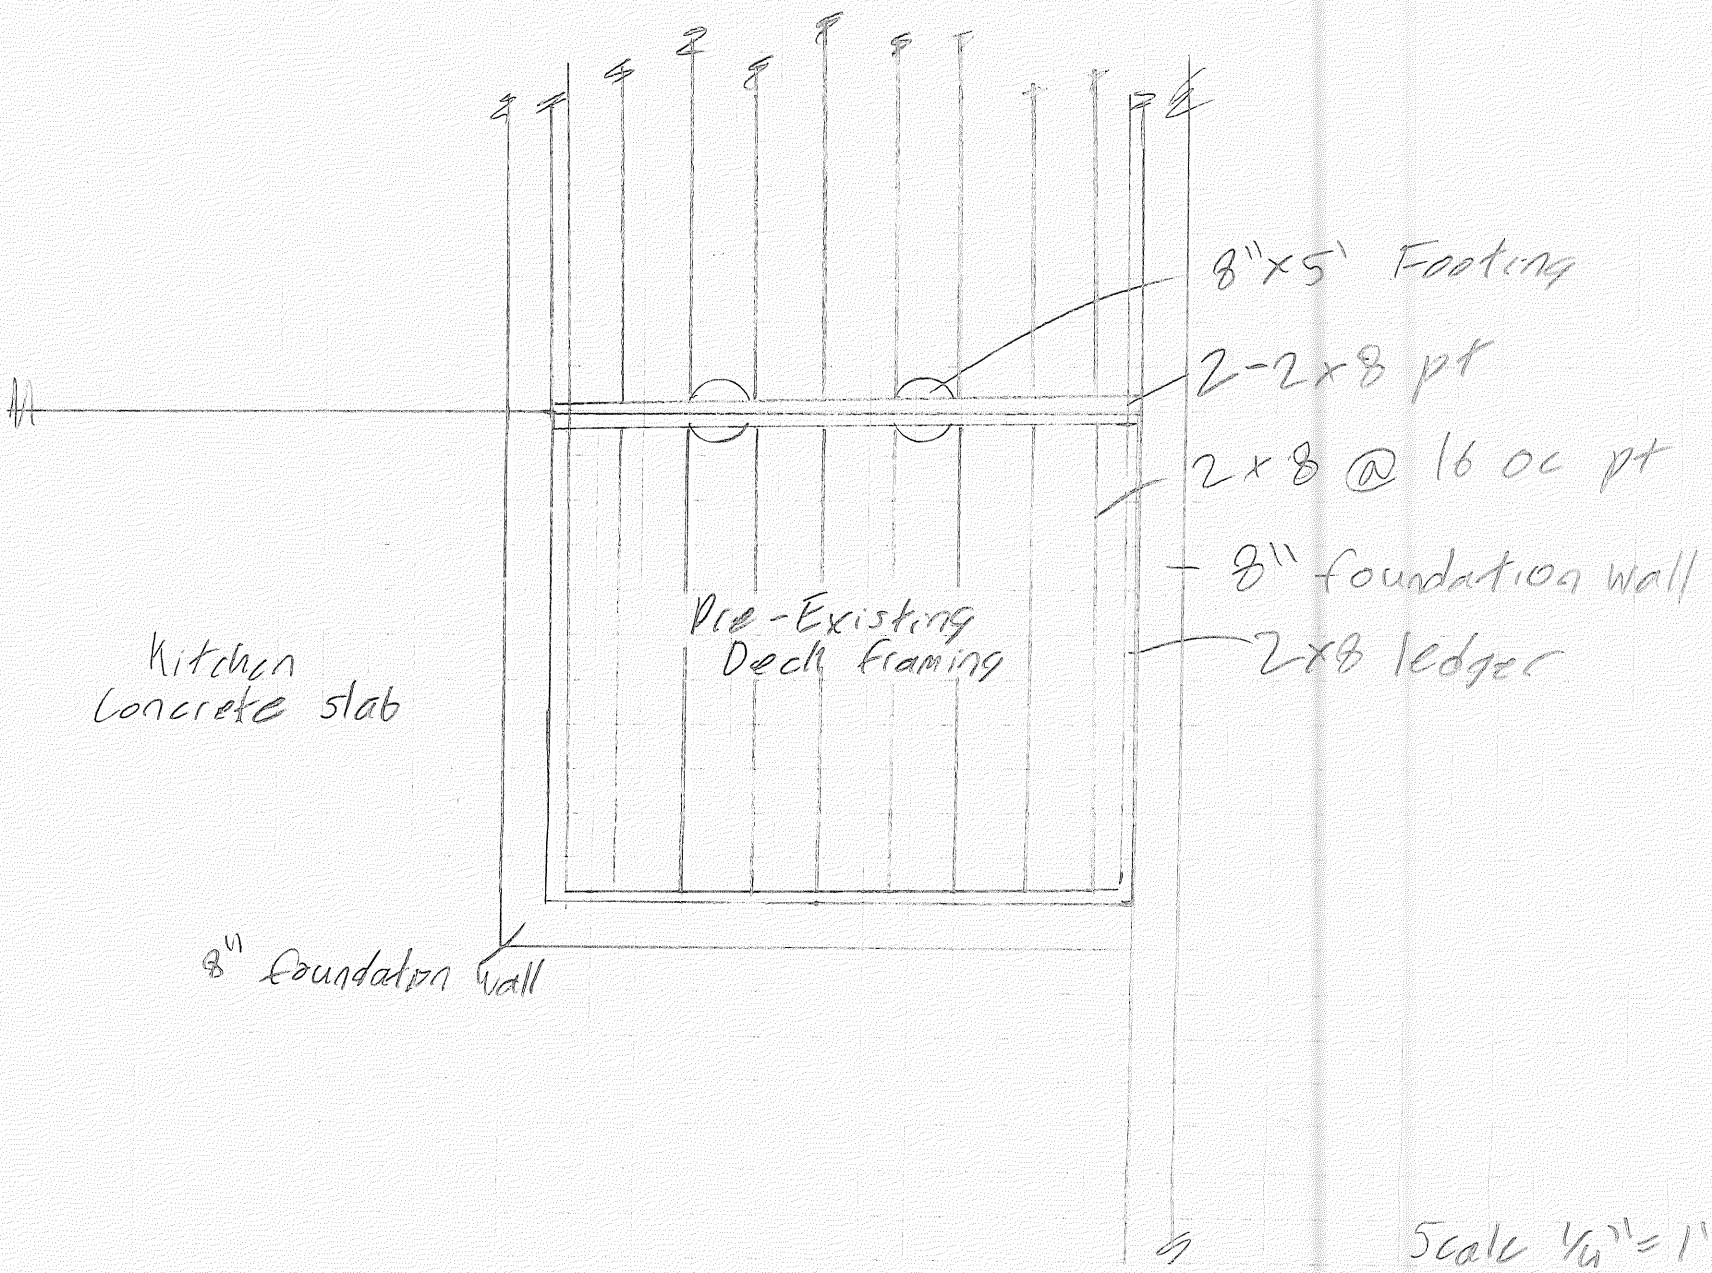 8"x5' Footing
2-2x8 pt
2x8 @ 16 oc pt
8" foundation wall
2x8 ledger
Pre-Existing
Deck framing
Kitchen
Concrete slab
8" foundation wall
Scale 1/4"=1'